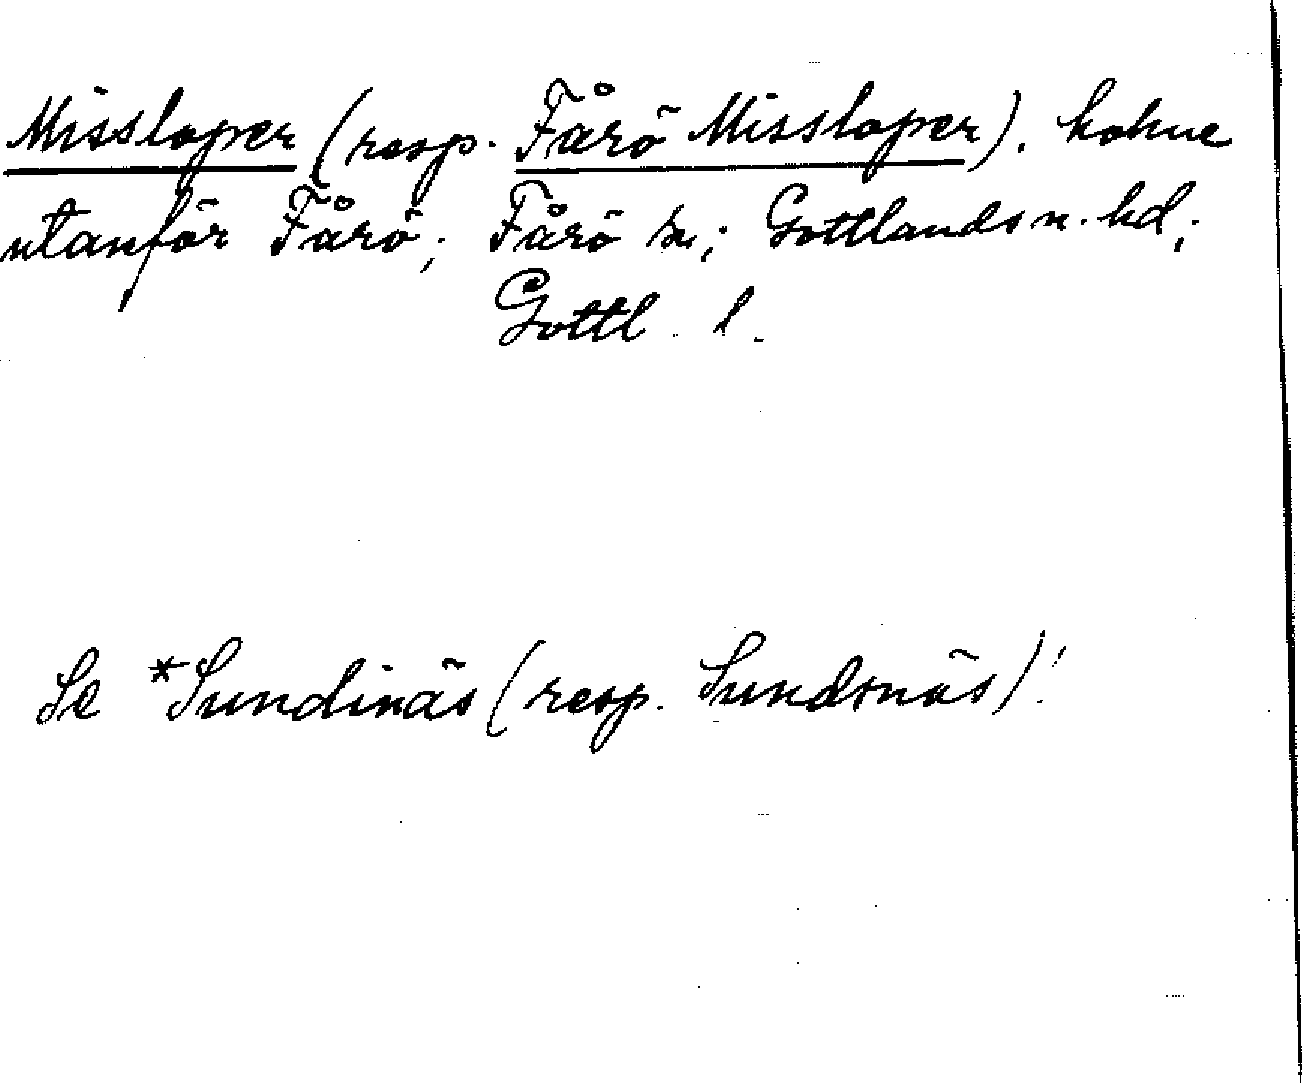 Missloper (resp. Fårö Missloper). holme
utanför Fårö; Fårö sn; Gottlands n. hd;
Gottl. l.
Se *Sundinäs (resp. Sundsnäs)!